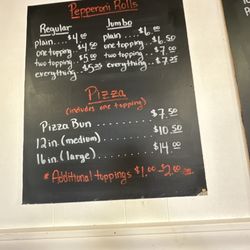 Pepperoni Rolls
Regular Jumbo
plain.....$4.00 plain.....$6.00
one topping..$4.50 one topping..$6.50
two topping..$5.00 two topping..$7.00
everything..$5.25 everything..$7.25
Pizza
(includes one topping)
Pizza Bun..........$7.50
12in.(medium)........$10.50
16in.(large)..........$14.00
*Additional toppings $1.00-$2.00